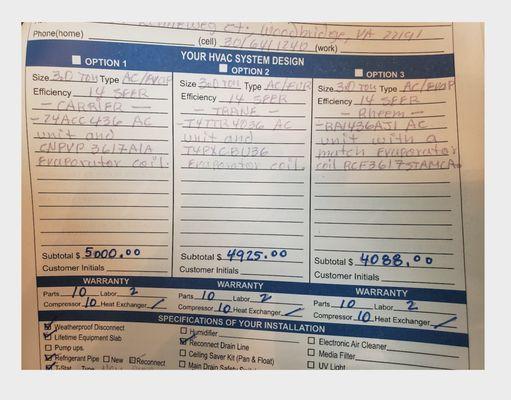 Woodbridge, VA 22191
Phone(home) (cell) (work)
YOUR HVAC SYSTEM DESIGN
OPTION 1 OPTION 2 OPTION 3
Size 3.0 TON Type AC/EVAP
Efficiency 14 SEER
- CARRIER -
- 24ACC436 AC
unit and
CNPVP3617ALA
Evaporator coil.
Subtotal $ 5000.00
Customer Initials
Size 3.0 TON Type AC/EVAP
Efficiency 14 SEER
- TRANE -
- 4TTR4036 AC
unit and
Evaporator coil.
Subtotal $ 4925.00
Customer Initials
Size 3.0 TON Type AC/EVAP
Efficiency 14 SEER
- Rheem -
- RA1436AJ1 AC
unit with a
match Evaporator
coil RCF3617STAMCA
Subtotal $ 4088.00
Customer Initials
WARRANTY WARRANTY WARRANTY
Parts 10 Labor 2 Parts 10 Labor 2 Parts 10 Labor 2
Compressor 10 Heat Exchanger Compressor 10 Heat Exchanger Compressor 10 Heat Exchanger
SPECIFICATIONS OF YOUR INSTALLATION
Weatherproof Disconnect
Lifetime Equipment Slab
Pump ups.
Refrigerant Pipe New Reconnect
T-Stat Type
Humidifier
Reconnect Drain Line
Ceiling Saver Kit (Pan & Float)
Main Drain Safety Switch
Electronic Air Cleaner
Media Filter
UV Light